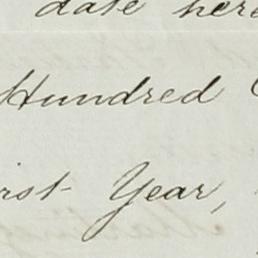 date here
Hundred
rst Year,